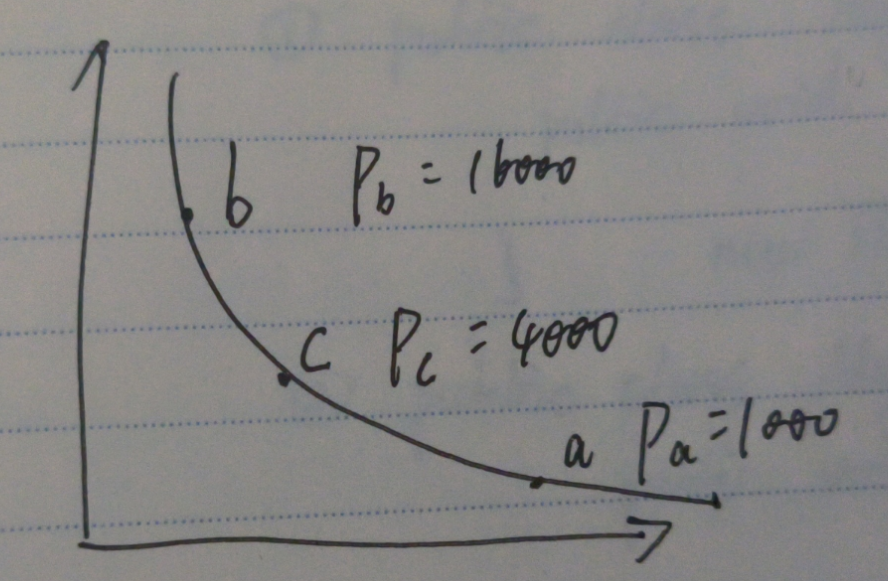 b P_b = 16000
c P_c = 4000
a P_a = 1000